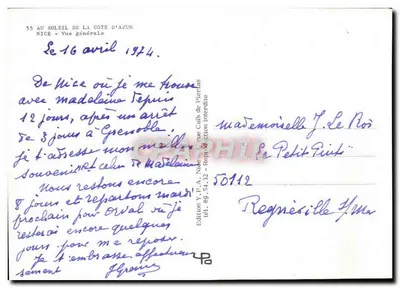 55 AU SOLEIL DE LA COTE D'AZUR
NICE - Vue générale
Le 16 avril 1974.
De Nice où je me trouve
avec madeleine depuis
12 jours, après un arrêt
de 3 jours à Grenoble.
Je t'adresse mon meilleur
souvenir et celui de madeleine
Nous restons encore
8 jours et repartons mardi
prochain pour Orval où je
resterai encore quelques
jours pour me reposer.
Je t'embrasse affectueu
sement
Edition Y.P.A. Nice
Reproduction interdite
mademoiselle J. Le Roi
Le Petit
50112
Regnéville s/mer